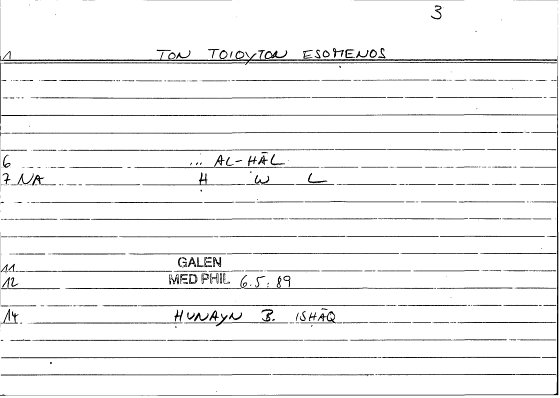 3
1 TON TOIOYTON ESOMENOS
6 ... AL-HĀL
7 NA H W L
11 GALEN
12 MED PHIL 6.5:89
14 HUNAYN B. ISHĀQ